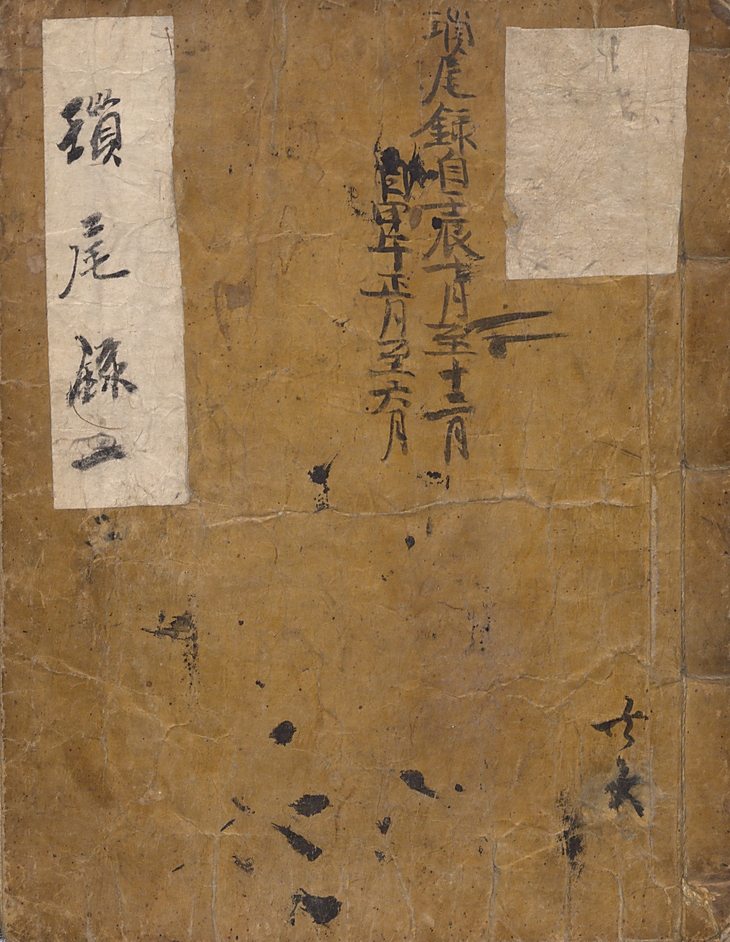 瑣尾錄自壬辰月至十二月
自甲午正月至六月
瑣尾錄二